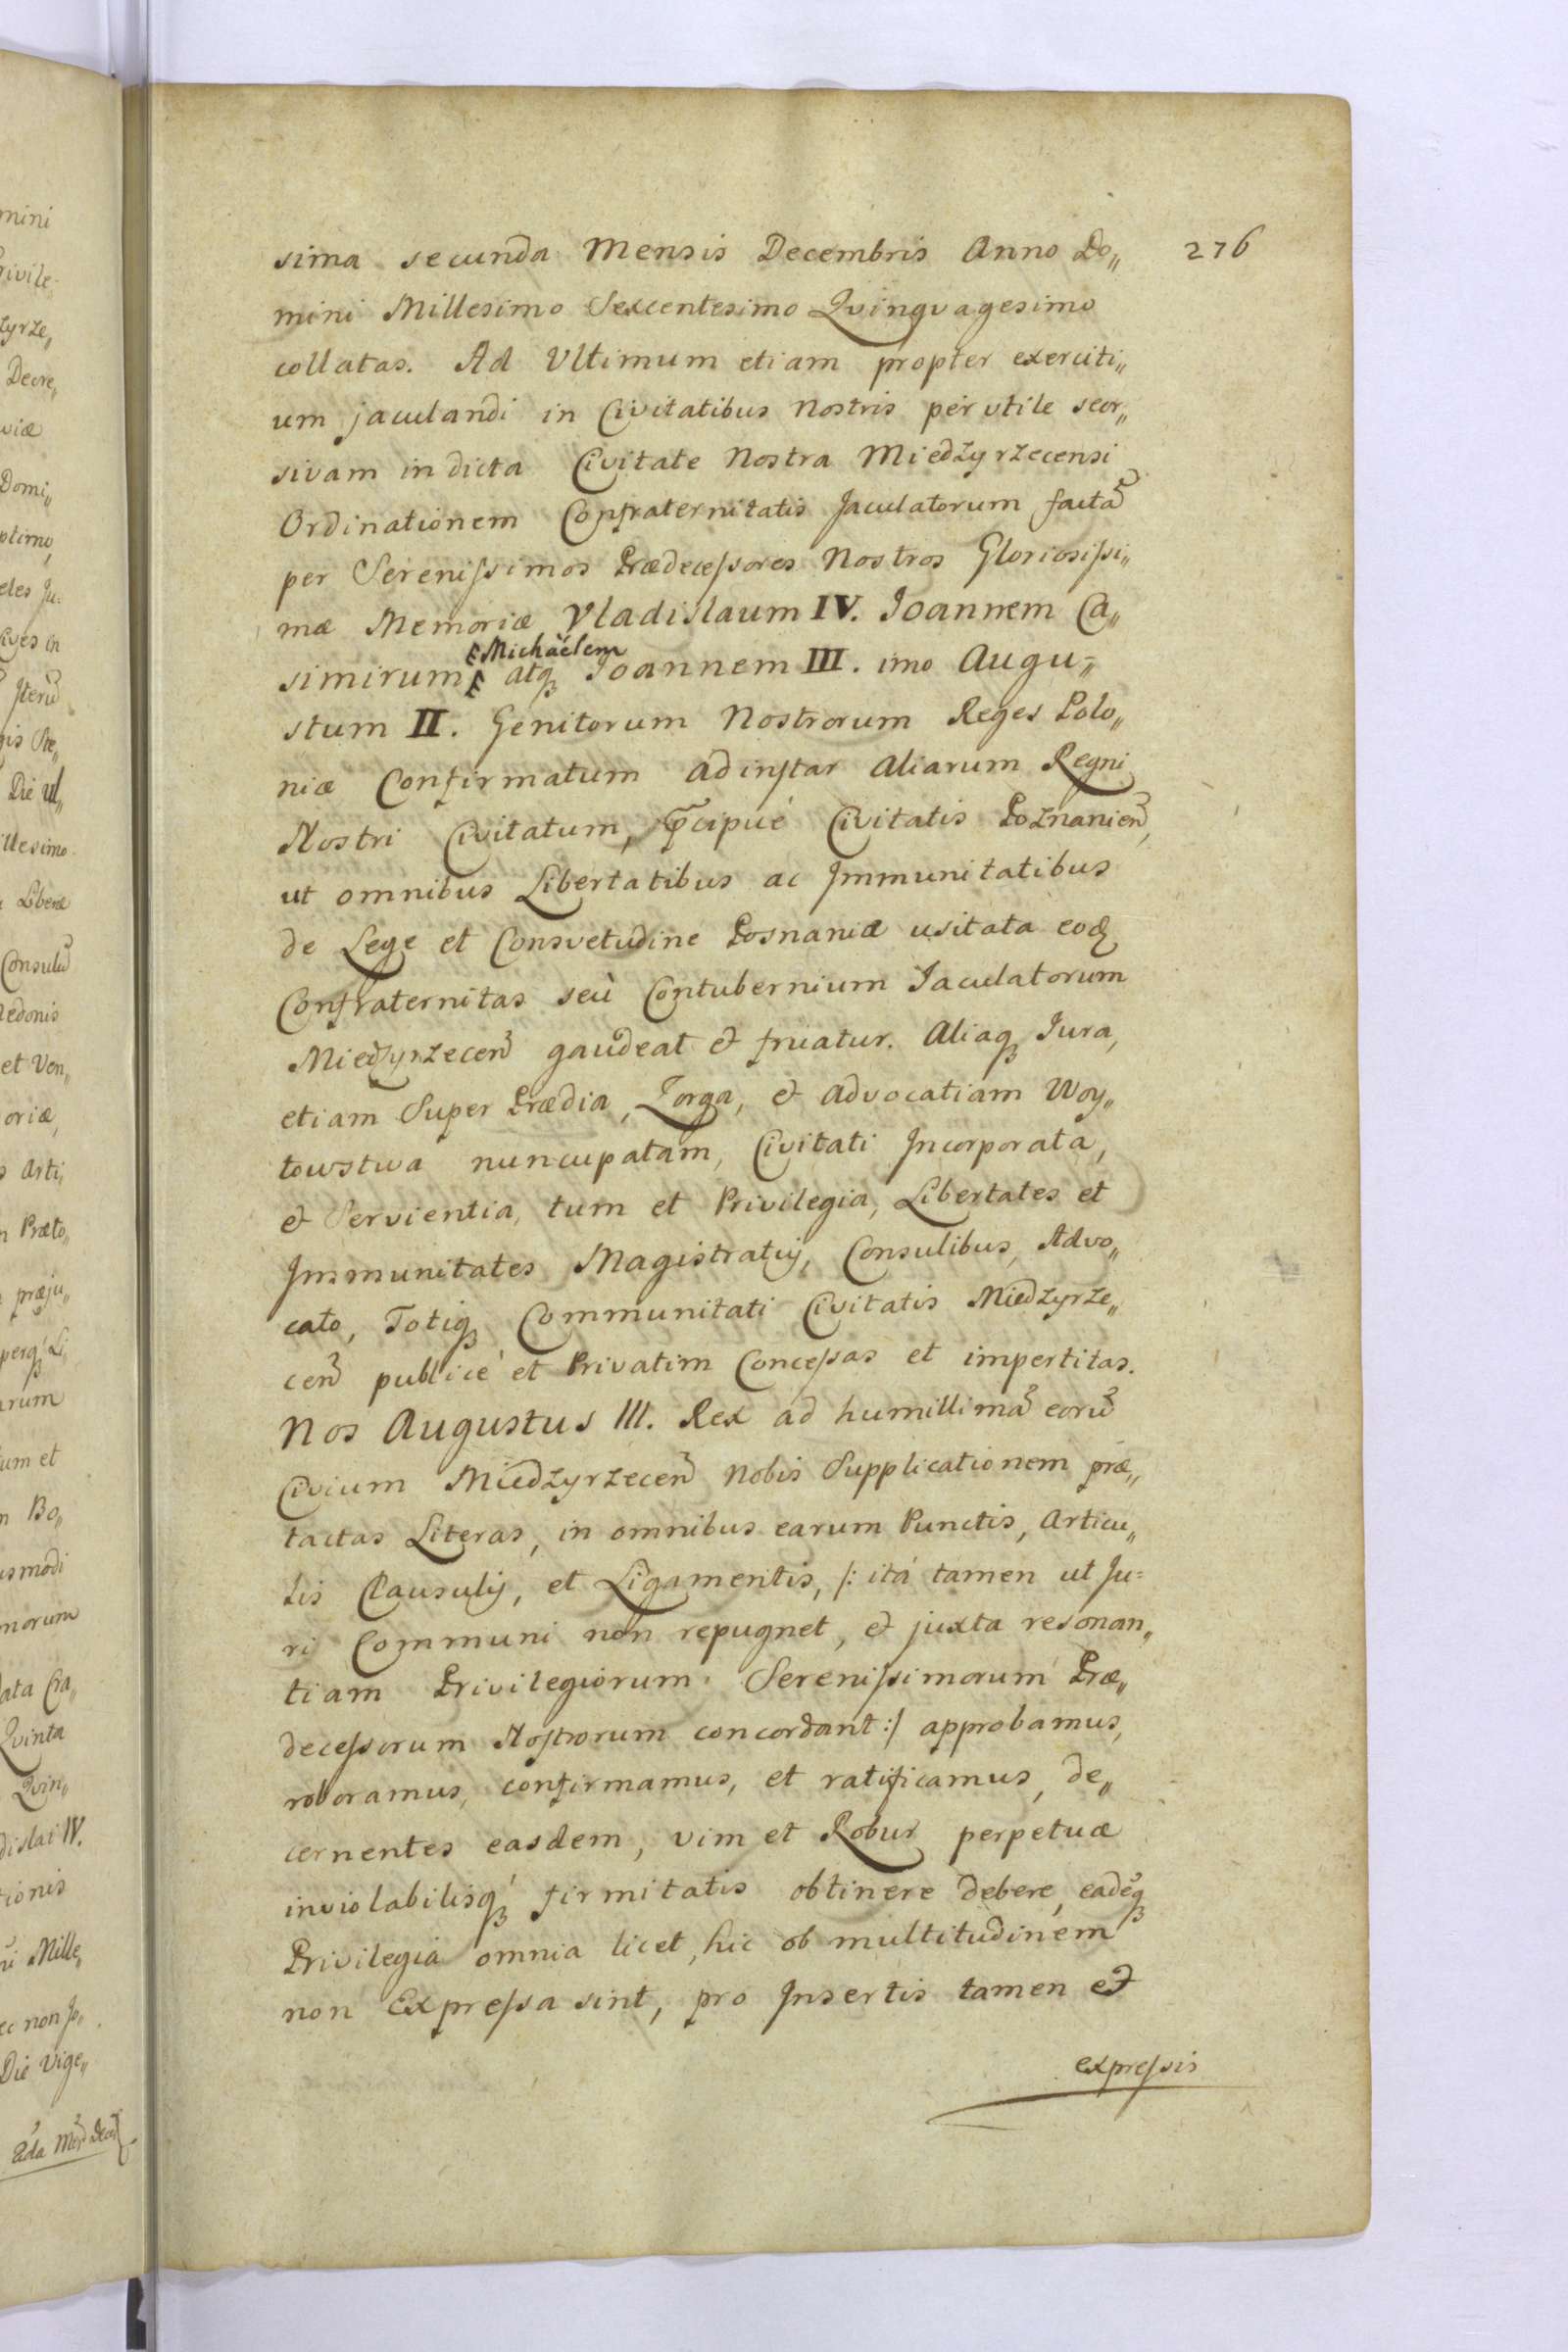 276
sima secunda Mensis Decembris Anno Do„
mini Millesimo Sexcentesimo Qvinqvagesimo
collatas. Ad Ultimum etiam propter exerciti„
um jaculandi in Civitatibus Nostris perutile seor„
sivam in dicta Civitate Nostra Miedzyrzecensi
Ordinationem Confraternitatis Jaculatorum facta᷉
per Serenissimos Prædecessores Nostros Gloriosissi„
mæ Memoriæ Vladislaum IV. Joannem Ca„
Michaëlem
simirum atq₃ Joannem III. imo Augu=
stum II. Genitorum Nostrorum Reges Polo„
niæ Confirmatum ad instar aliarum Regni
Nostri Civitatum, p̃cipué Civitatis Poznanien᷉,
ut omnibus Libertatibus ac Immunitatibus
de Lege et Consvetudine Posnaniæ usitata eoq₃
Confraternitas seù Contubernium Jaculatorum
Miedzyrzecen᷉ gaudeat & fruatur. Aliaq₃ Jura,
etiam Super Prædia, Zorga, & advocatiam Woy„
towstwa nuncupatam, Civitati Incorporata,
& Servientia, tum et Privilegia, Libertates et
Immunitates Magistratuj, Consulibus, Advo„
cato, Totiq₃ Communitati Civitatis Miedzyrze„
cen᷉ publicé et Privatim Concessas et impertitas.
Nos Augustus III. Rex ad humillima᷉ eoru᷉
Civium Miedzyrzecen᷉ Nobis Supplicationem præ„
tactas Literas, in omnibus earum Punctis, Articu„
lis Clausulij, et Ligamentis, /: itá tamen ut Ju=
ri Communi non repugnet, & juxta resonan„
tiam Privilegiorum Serenissimorum Præ„
decessorum Nostrorum concordant :/ approbamus,
roboramus, confirmamus, et ratificamus, de„
cernentes easdem, vim et Robur perpetuæ
inviolabilisq₃ firmitatis obtinere debere, eade᷉q₃
Privilegia omnia licet hic ob multitudinem
non Expressa sint, pro Insertis tamen &
expressis